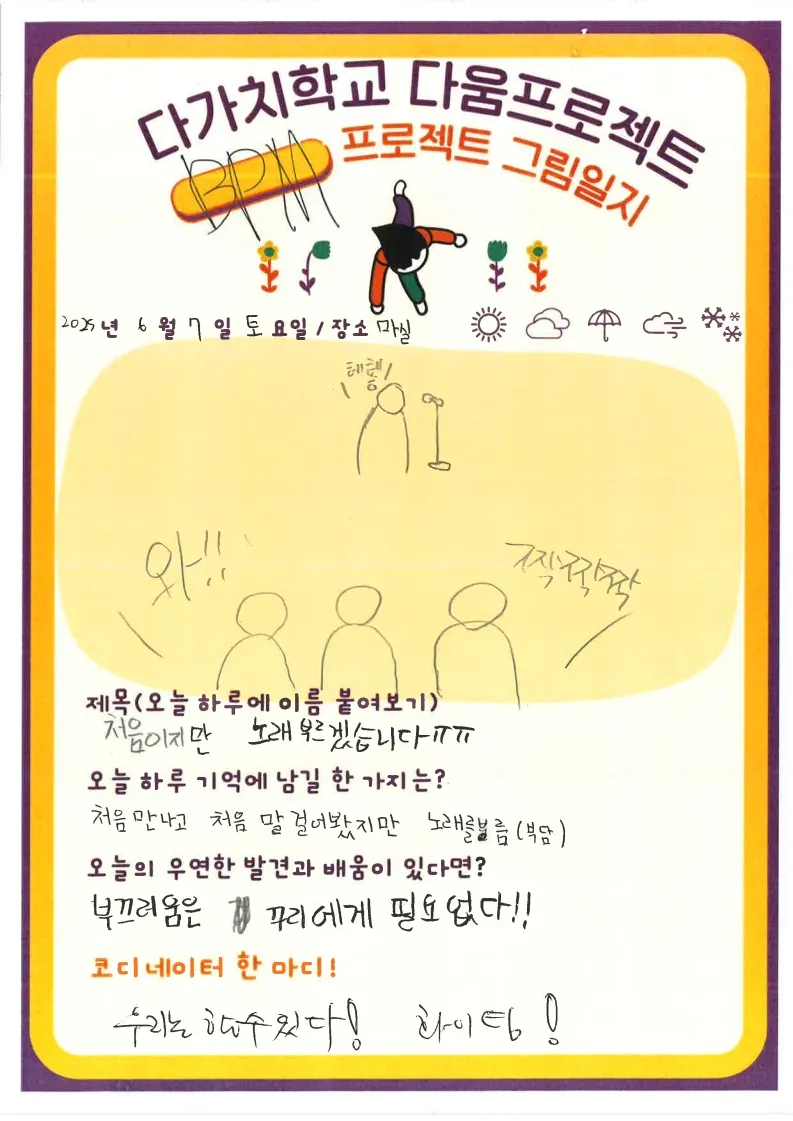 다가치학교 다움프로젝트
BPM 프로젝트 그림일지
2025년 6월 7일 토요일 / 장소 마실
와!!
짝짝짝
제목(오늘 하루에 이름 붙여보기)
처음이지만 노래부르겠습니다ㅠㅠ
오늘 하루 기억에 남길 한 가지는?
처음만나고 처음 말 걸어봤지만 노래를부름(부담)
오늘의 우연한 발견과 배움이 있다면?
부끄러움은 꾸리에게 필요없다!!
코디네이터 한 마디!
우리는 할수있다! 화이팅!